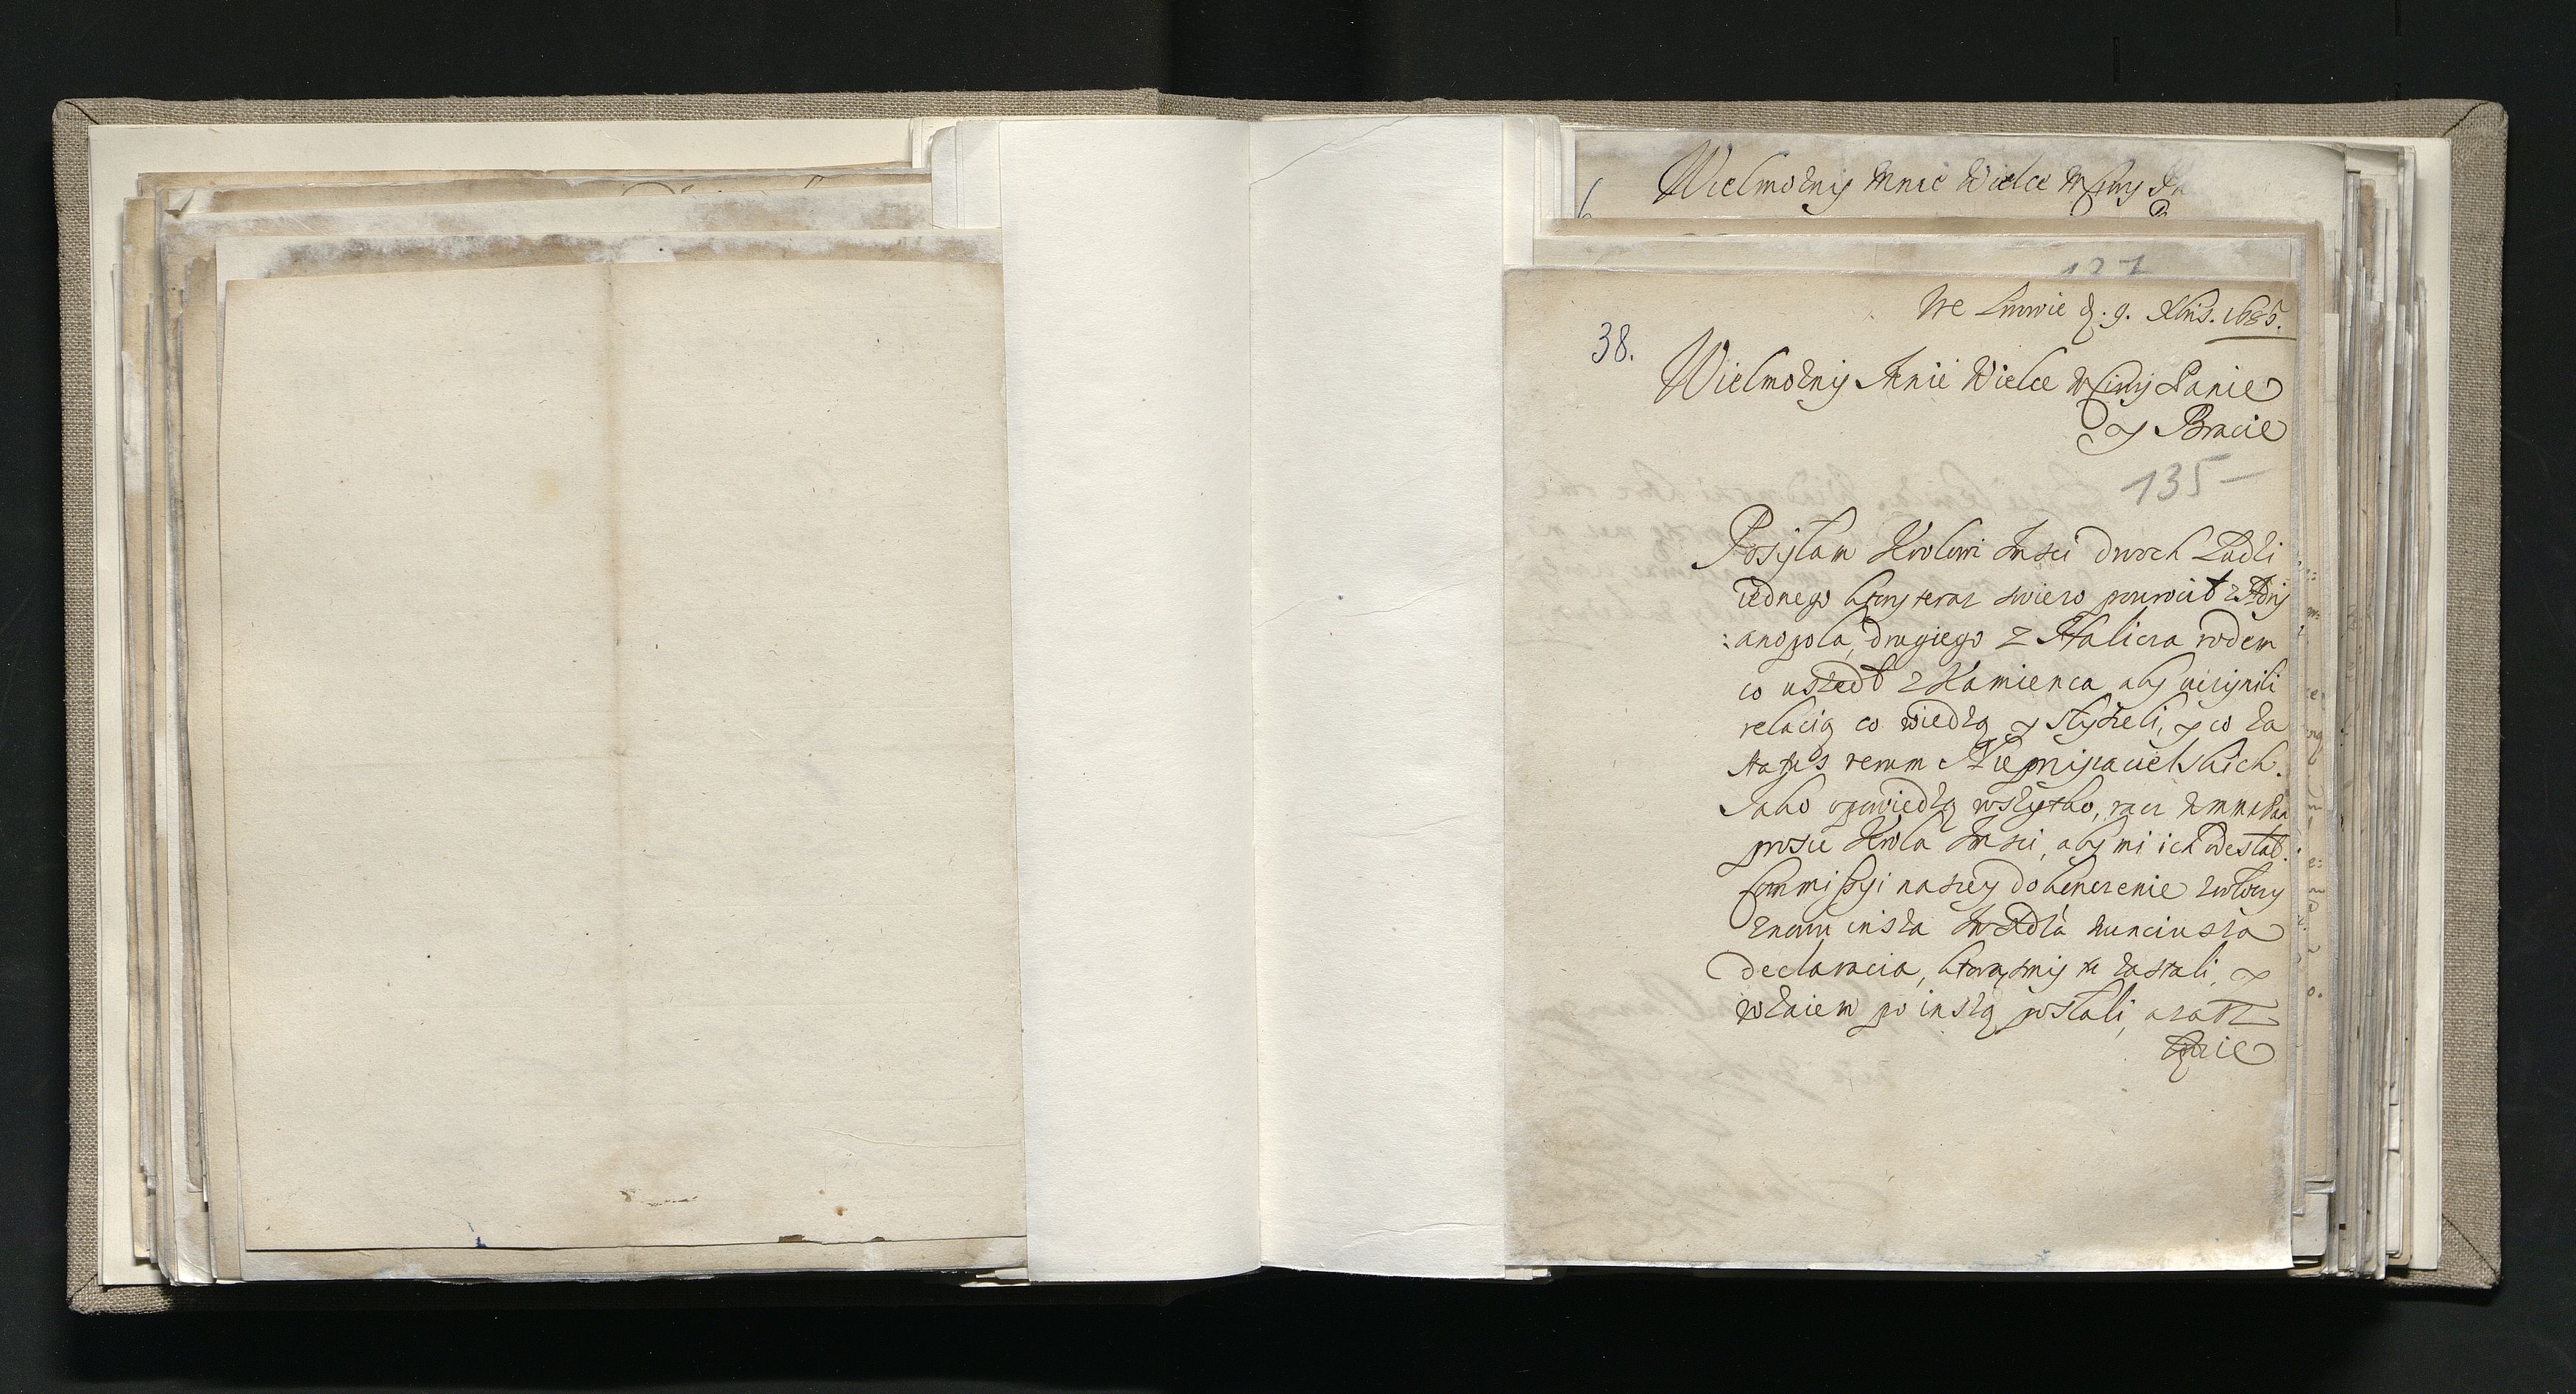 Wielmożny Mnie Wielce
We Lwowie d. 9. Xbris. 1685.
38.
Wielmożny Mnie Wielce Mściwy Panie
y Bracie
135
Posyłam Krolowi Jmsci dwoch Ludzi
iednego ktory teraz swiezo powrocił z Adry
:anopola, drugiego z Halicza rodem
co uszedł z Kamienca aby uczynili
relacią co wiedzą y słyszeli, y co za
status rerum Nieprzyiacielskich.
Jako opowiedzą wszytko, racz
prosic Krola Jmsci, aby mi ich odesłał.
Commissyi naszey dokonczenie
znowu insza dla Nunciusza
declaracia, ktorąsmy tu zastali, y
po inszą posłali,